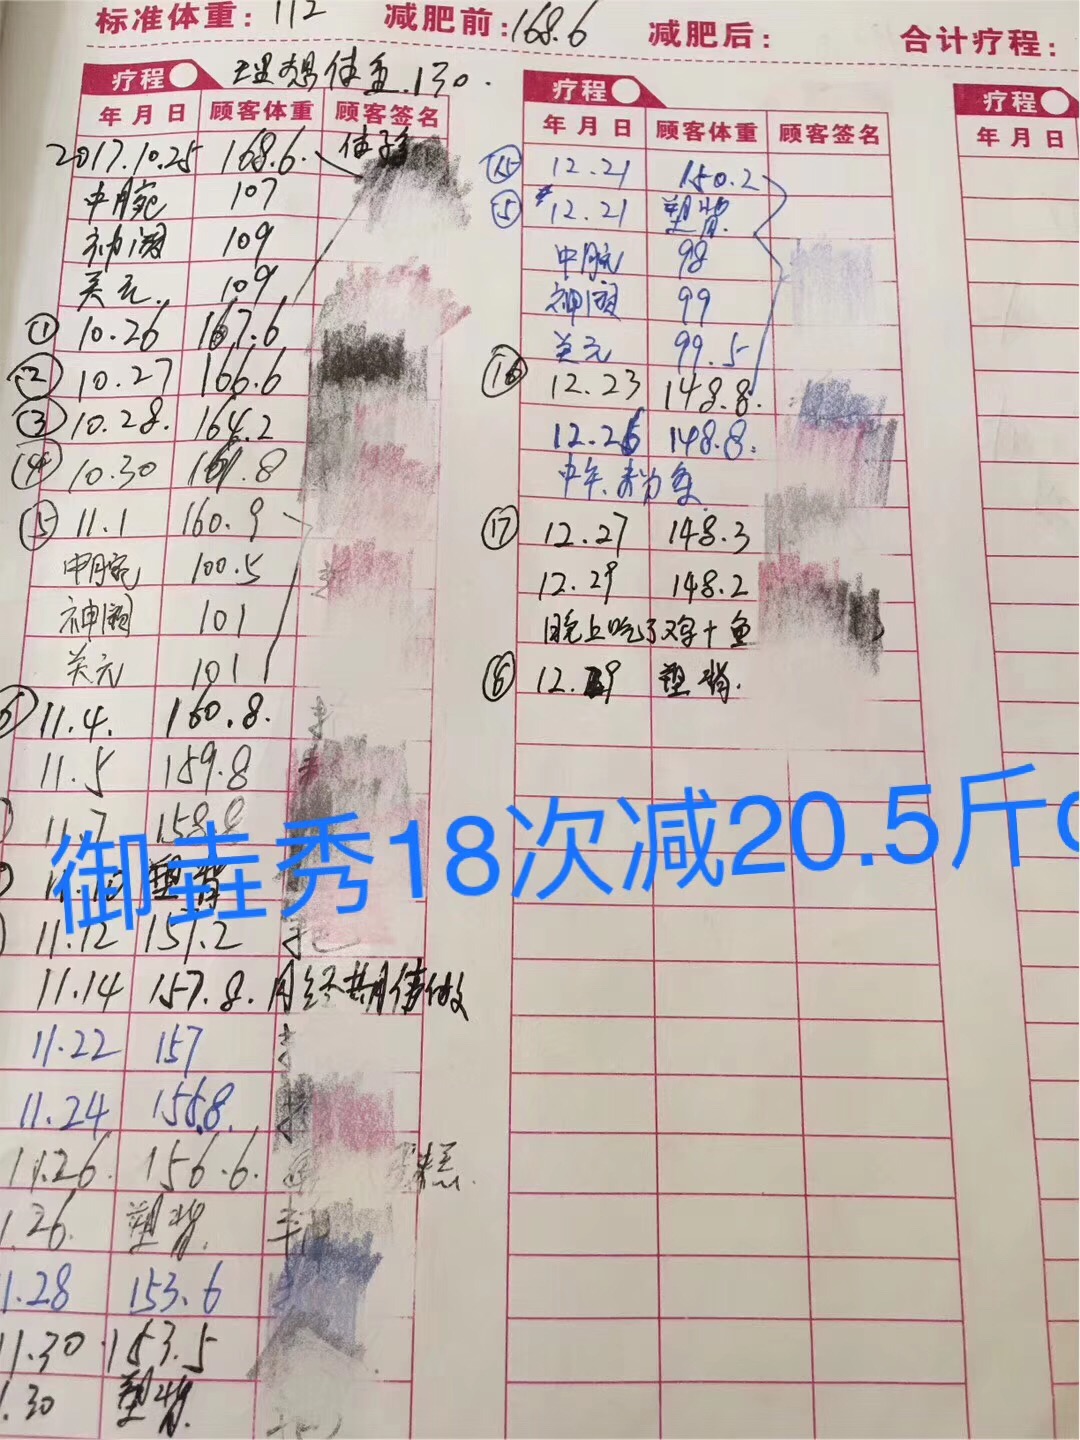 标准体重：112 减肥前：168.6 减肥后： 合计疗程：
疗程 理想体重.130.
年月日 顾客体重 顾客签名
2017.10.25 168.6.
中脘 107
神阙 109
关元. 109
① 10.26 167.6
② 10.27 166.6
③ 10.28. 164.2
④ 10.30 161.8
⑤ 11.1 160.9
中脘 100.5
神阙 101
关元 101
11.4. 160.8.
11.5 159.8
11.7 158.8
塑背
11.12 157.2
11.14 157.8. 月经期停做
11.22 157
11.24 155.8
11.26. 156.6.
1.26. 塑背.
1.28 153.6
11.30 153.5
1.30 塑背.
疗程
年月日 顾客体重 顾客签名
⑮ 12.21 150.2
⑤ 12.21 塑背.
中脘 98
神阙 99
关元 99.5
⑯ 12.23 148.8.
12.26 148.8.
⑰ 12.27 148.3
12.29 148.2
晚上吃了鸡+鱼
12.29 塑背.
疗程
年月日
御垚秀18次减20.5斤